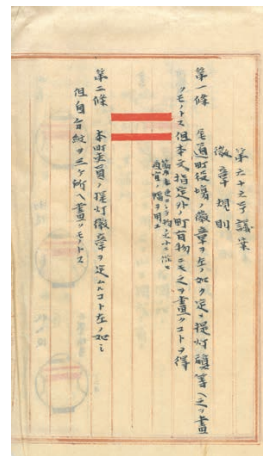 第六十三号議案
徽章規則
第一條 尾道町役場ノ徽章ヲ左ノ如ク定メ提灯旗等ヘ之ヲ畫
クモノトス但本文指定外ノ町有物ニモ之ヲ畫クコトヲ得
第二條 本町吏員ノ提灯徽章ヲ定ムルコト左ノ如シ
但自分紋ヲ三ヶ所ヘ畫クモノトス